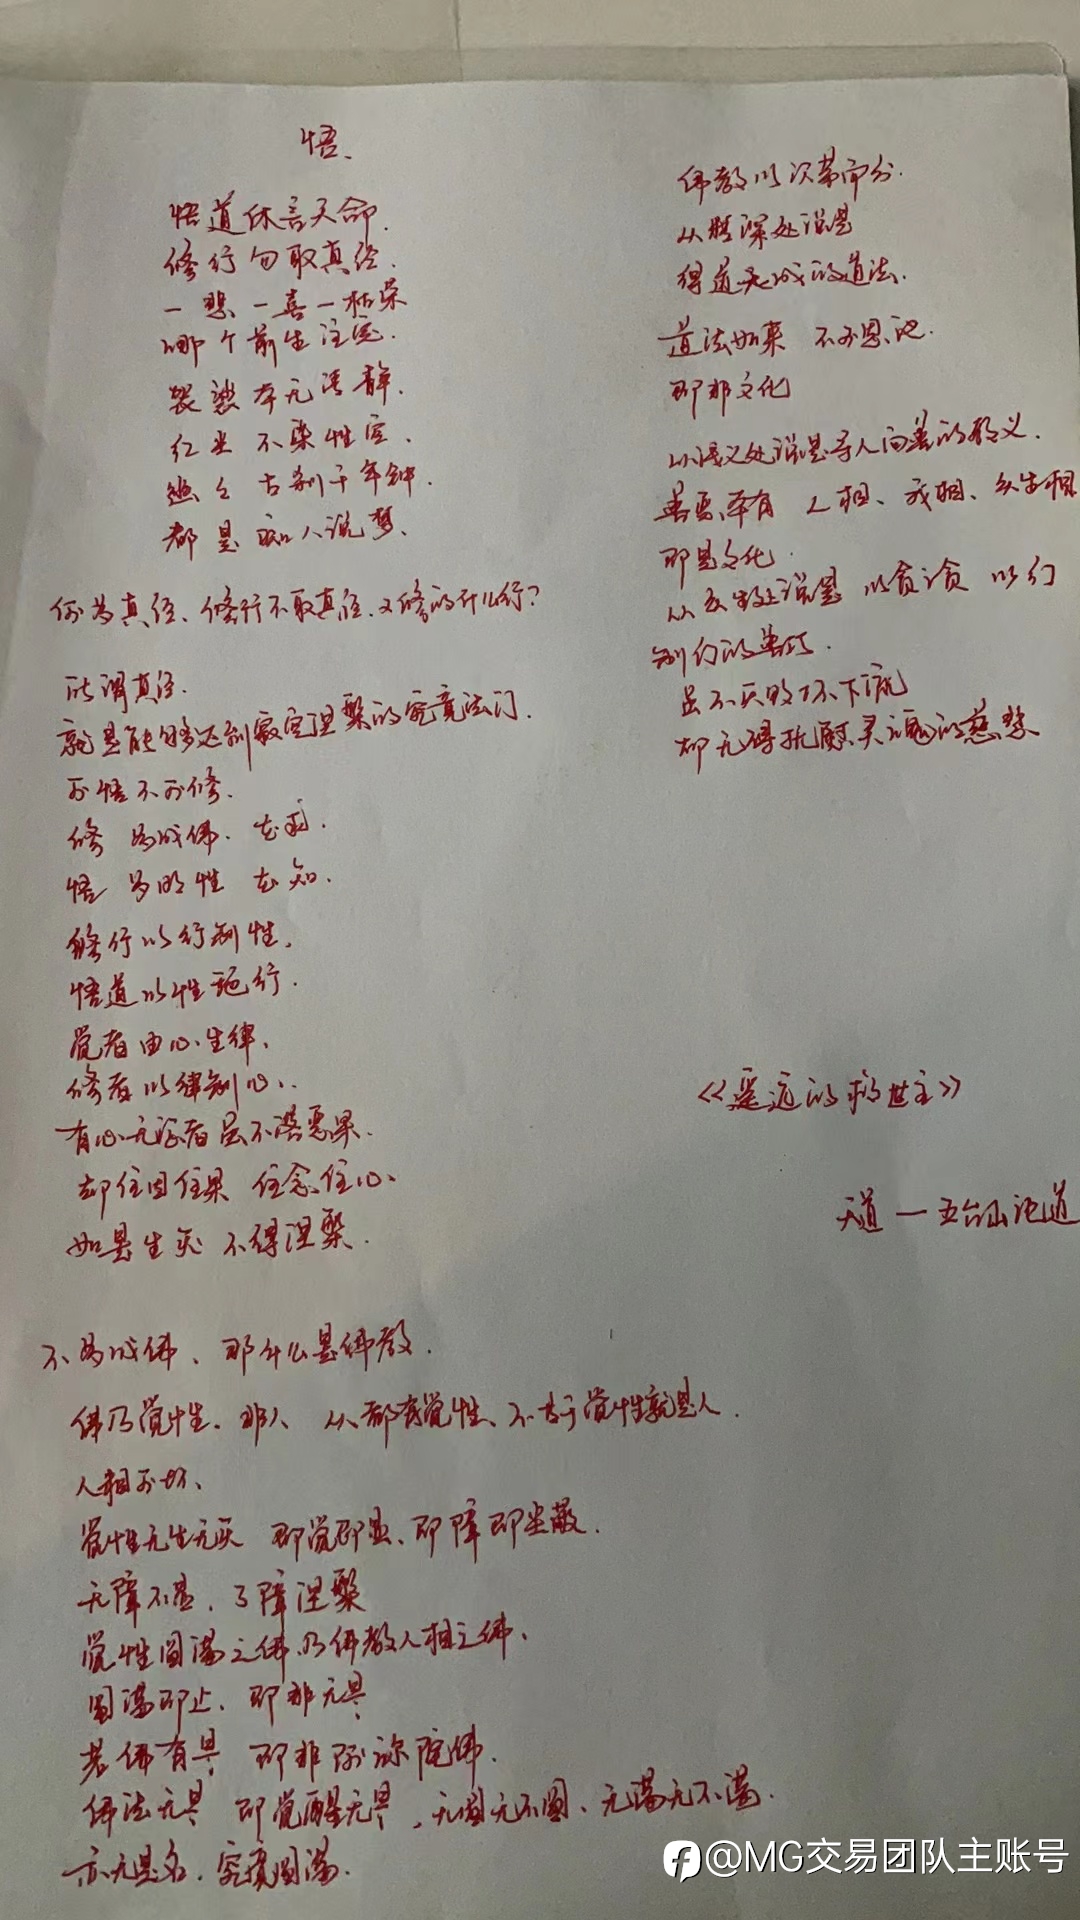 悟、
悟道休言天命.
修行勿取真经.
一悲一喜一枯荣
哪个前生注定.
袈裟本无清静.
红尘不染性空.
悠悠古刹千年钟.
都是痴人说梦、
何为真经、修行不取真经、又修的什么行?
所谓真经.
就是能够达到寂空涅槃的究竟法门.
可悟不可修.
修 为成佛、在求.
悟 为明性 在知.
修行以行制性、
悟道以性施行.
觉者由心生律、
修者以律制心、.
有心无证者虽不落恶果.
却住因住果 住念住心、
如是生灭 不得涅槃.
不为成佛、那什么是佛教.
佛乃觉性、非人 人都有觉性、不等于觉性就是人.
人相可坏、
觉性无生无灭 即觉即显、即障即尘蔽.
无障不显、了障涅槃
觉性圆满之佛、乃佛教人相之佛、
圆满即止、即非无量
若佛有量 即非阿弥陀佛.
佛法无量 即觉醒无量、无圆无不圆、无满无不满.
亦无是名、究竟圆满.
佛教以次第而分.
从精深处说是
得道天成的道法.
道法如来 不可思议.
即非文化
以浅义处说是导人向善的教义.
善恶本有 人相、我相、众生相
即是文化.
从众生处说是 以贪治贪 以幻
制幻的善巧.
虽不灭败坏下流
却无碍抚慰灵魂的慈悲
《遥远的救世主》
天道一五台山论道
@MG交易团队主账号